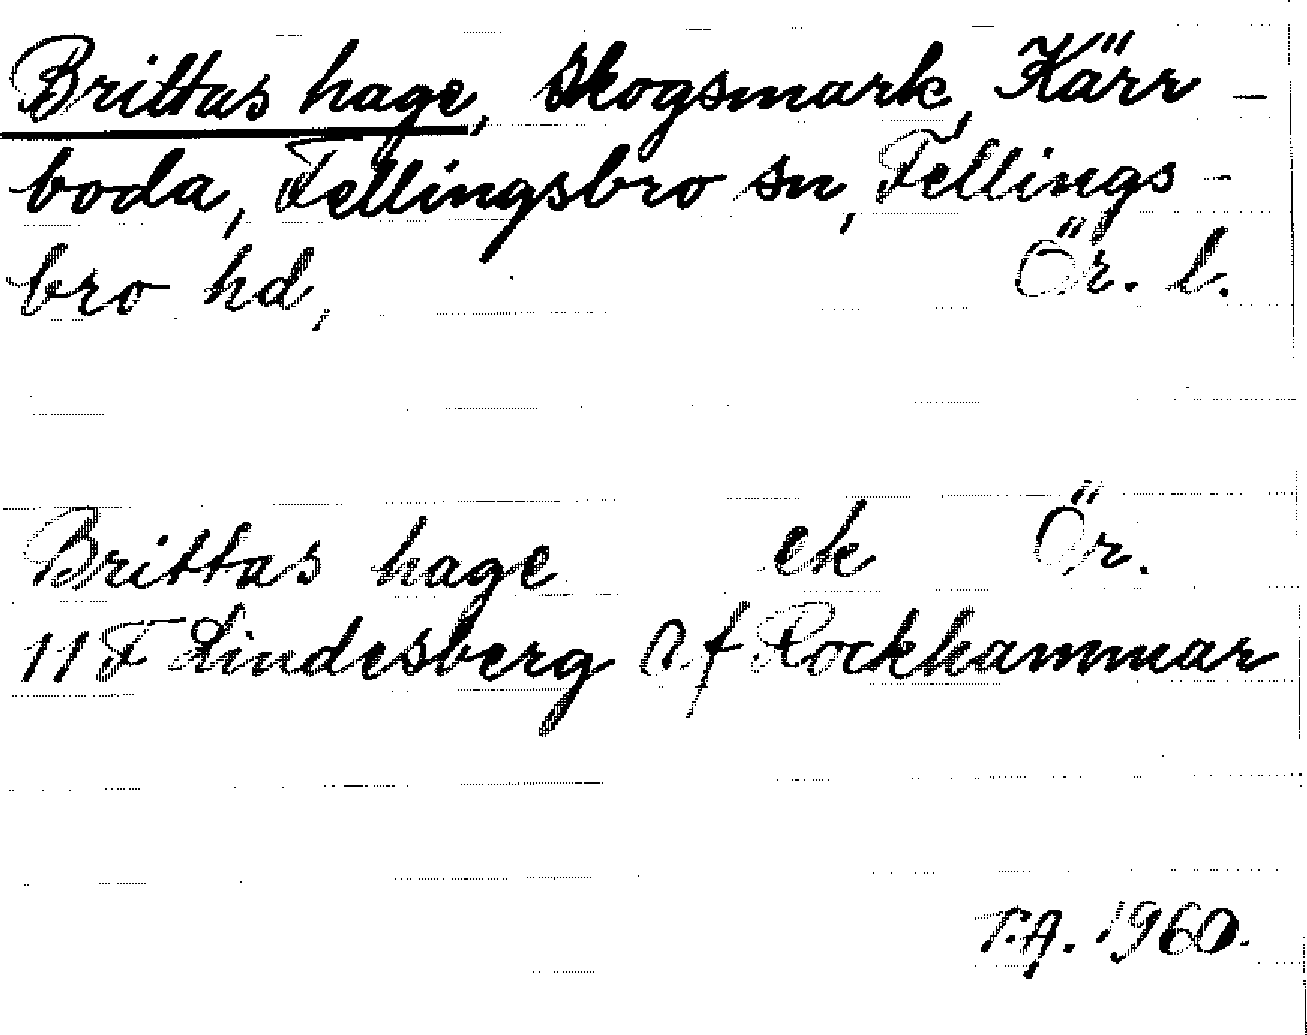 Brittas hage, Skogsmark, Kärr-
boda, Fellingsbro sn, Fellings-
bro hd, Ör. l.
Brittas hage ek Ör.
11 F Lindesberg a. f Rockhammar
T.A. 1960.